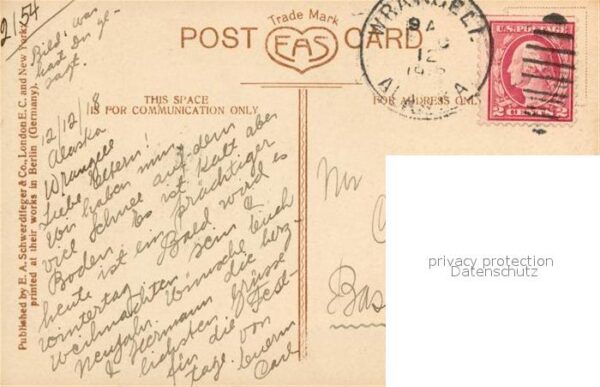 2154
Bild, was
hast Du ge-
sagt.
Trade Mark
EAS
POST CARD
THIS SPACE
IS FOR COMMUNICATION ONLY
FOR ADDRESS ONLY
WRANGELL
12
ALASKA
U.S. POSTAGE
2 CENTS 2
Published by E. A. Schwerdtfeger & Co., London E. C. and New York,
printed at their works in Berlin (Germany).
12/12/18
Alaska
Wrangell
Liebe Eltern!
Wir haben nun
viel Schnee auf dem
Boden. Es ist kalt aber
heute ist ein prächtiger
Wintertag. Bald wird es
Weihnachten sein &
Neujahr. Wünsche Euch
& Hermann die herz-
lichsten Grüsse
für die Fest-
tage. von
Euerm
Carl
Mr
Bas
privacy protection
Datenschutz